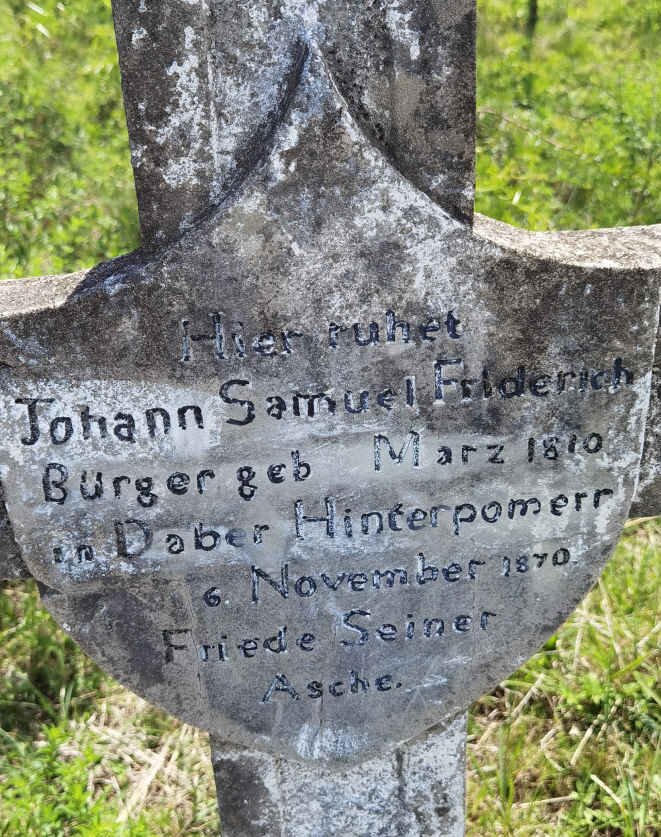 Hier ruhet
Johann Samuel Friderich
Bürger geb Marz 1810
in Daber Hinterpomerr
6. November 1870.
Friede Seiner
Asche.